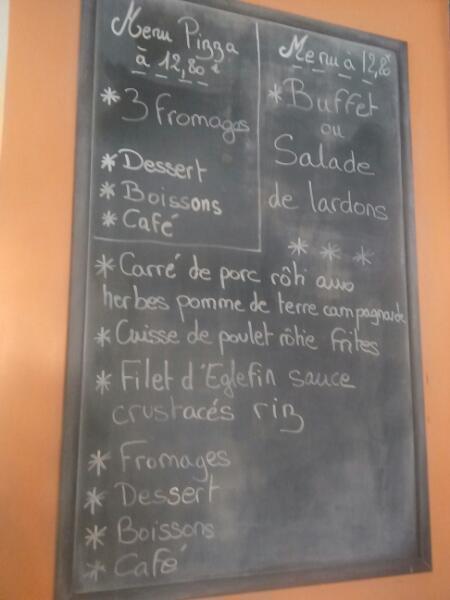 Menu Pizza
à 12,80 €
* 3 fromages
* Dessert
* Boissons
* Café
Menu à 12,80
* Buffet
ou
Salade
de lardons
* * *
* Carré de porc rôti aux
herbes pomme de terre campagnarde
* Cuisse de poulet rôtie frites
* Filet d'Eglefin sauce
crustacés riz
* Fromages
* Dessert
* Boissons
* Café